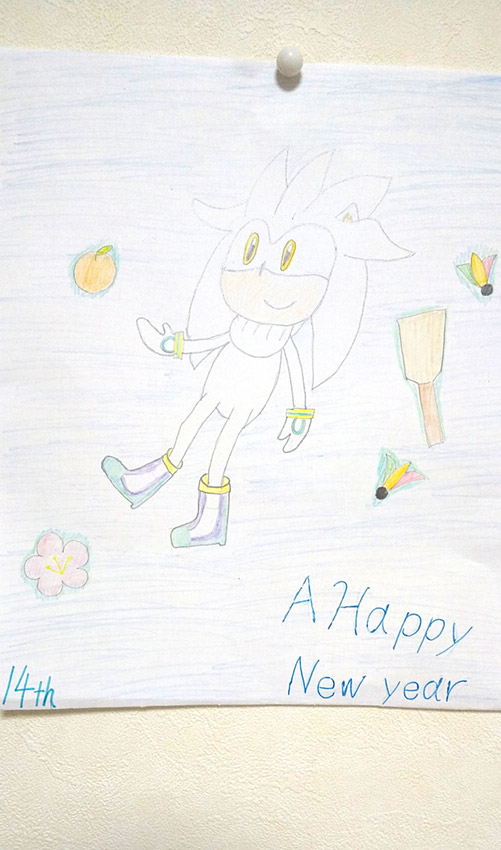 A Happy
New year
14th